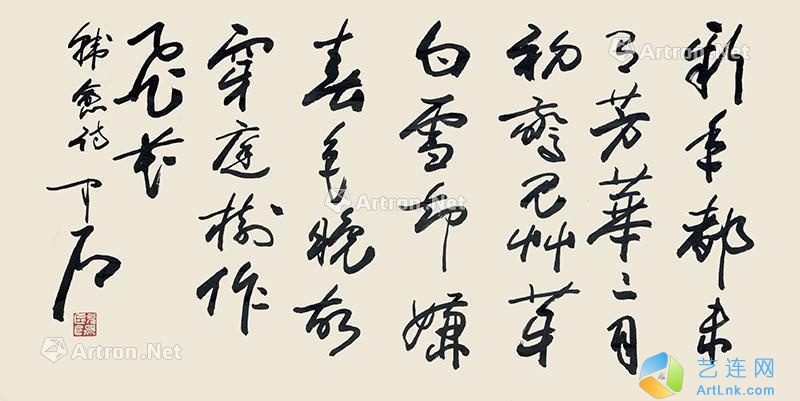 新年都未
有芳華二月
初驚見艸芽
白雪却嫌
春色晚故
穿庭樹作
飛花
韓愈詩 中石
Artron.Net
Artron.Net
Artron.Net
Artron.Net
Artron.Net
艺连网
ArtLnk.com